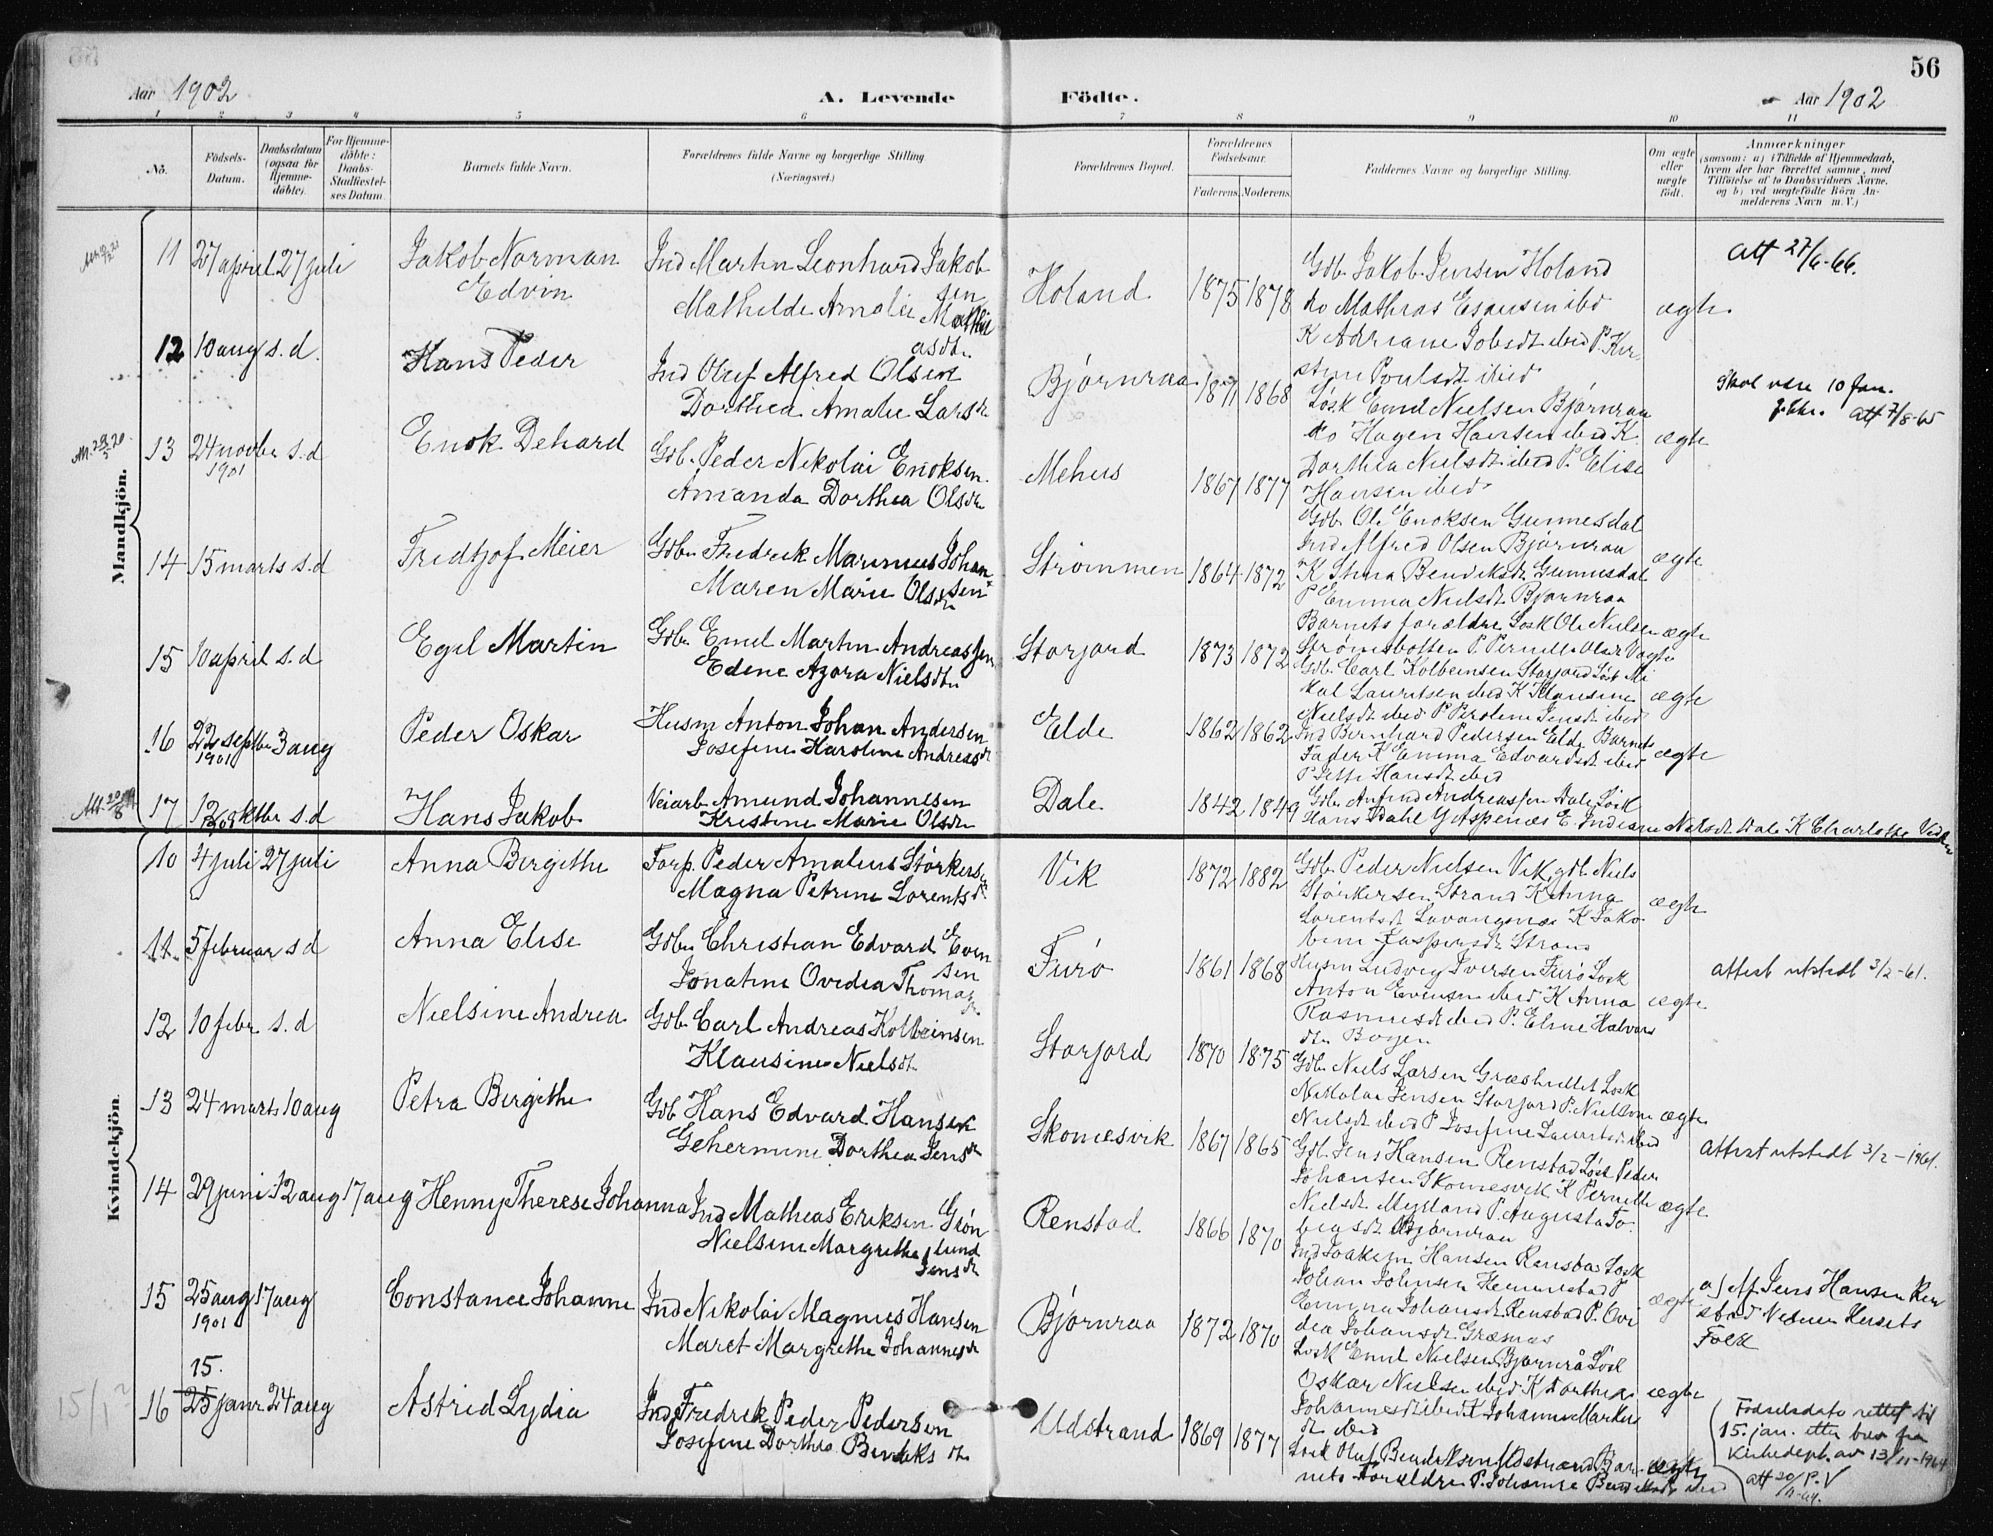 56
Aar 1902
A. Levende Födte.
Aar 1902
1 2 3 4 5 6 7 8 9 10 11
No.
Födsels-Datum.
Daabsdatum (ogsaa for Hjemmedöbte).
For Hjemmedöbte: Daabs-Stadfæstelses Datum
Barnets fulde Navn.
Forældrenes fulde Navne og borgerlige Stilling (Næringsvei.)
Forældrenes Bopæl.
Forældrenes Födselsaar.
Faderens. Moderens.
Faddernes Navne og borgerlige Stilling.
Om ægte eller uægte födt.
Anmærkninger
(saasom: a) i Tilfælde af Hjemmedaab, hvem der har forrettet samme, med Tilföielse af to Daabsvidners Navne, og b) ved uægtefödte Börn Anmelderens Navn m. V.)
Mandkjön.
11 27 april 27 juli
Jakob Norman
Edvin
Ind Martin Leonhard Jakob
sen
Mathilde Amalie Mathi
asdtr
Holand 1875 1878
Gdb. Jakob Jensen Holand
do Mathias Esaiasen ibd
ægte
att 27/6-66.
12 10 aug s.d.
Hans Peder
Ind Oluf Alfred Olsen
Dorthea Amalie Larsdtr
Bjørnraa 1871 1868
Løsk Emil Nielsen Bjørnraa
do Hagen Hansen ibid K
Dorthea Nielsdt ibid P. Elise
Hansen ibid
ægte
Skal være 10 jan.
att 7/8-65
13 24 novbr s.d
1901
Enok Dehard
Gdb. Peder Nikolai Enoksen
Amanda Dorthea Olsdtr
Mehus 1867 1877
Gdb. Ole Enoksen Gunnesdal
Ind Alfred Olsen Bjørnraa
K Stina Bendiksdt Gunnesdal
P Emma Nielsdt Bjørnraa
ægte
14 15 marts s.d
Fredtjof Meier
Gdbr Fredrik Marinius Johan
sen
Maren Marie Olsdtr
Strømmen 1864 1872
Barnets forældre Løsk Ole Nielsen
ægte
15 10 april s.d
Egil Martin
Gdbr Emil Martin Andreassen
Edine Azora Nielsdtr
Storjord 1873 1872
Gdb. Carl Kolbeinsen Storjord Løsk Mi
kal Lauritsen ibid K Klausine
Nielsdt ibid P Peroline Jensdt ibid
ægte
16 22 septbr 3 aug
1901
Peder Oskar
Husm Anton Johan Andersen
Josefine Karoline Andreasdt
Elde 1862 1862
Ind Bernhard Pedersen Elde Barnets
Fader K Emma Edvardsdt ibid
ægte
17 12 oktbr s.d
Hans Jakob
Veiarb Amund Johannesen
Kristine Marie Olsdtr
Dale 1842 1849
Kvindekjön.
10 4 juli 27 juli
Anna Birgithe
Forp. Peder Amalius Størkersen
Magna Petrine Lorentsdt
Vik 1872 1882
Gdb. Peder Nielsen Vik gdb. Niels
Størkersen Strand K Anna
Lorentsdt Lavangsnes K Jako
bine Kaspersdt Strand
ægte
11 5 februar s d
Anna Elise
Gdbr Christian Edvard Even
sen
Jonatine Ovidia Thomasdtr
Furø 1861 1868
Husm Ludvig Iversen Furø Løsk
Anton Evensen ibid K Anna
Rasmusdt ibid P. Eline Halvors
dtr Bogen
ægte
attest utstedt 3/2-61.
12 10 febr s.d
Nielsine Andrea
Gdb. Carl Andreas Kolbeinsen
Klausine Nielsdt
Storjord 1870 1875
Gdb. Niels Larsen Græshullet Løsk
Nikolai Jensen Storjord P. Nielsine
Nielsdt ibid P Josefine Lauritsdt ibid
ægte
13 24 marts 10 aug
Petra Birgithe
Gdb Hans Edvard Hansen
Gehermine Dorthea Jensdt
Skomesvik 1867 1865
Gdb. Jens Hansen Renstad Løsk Peder
Johansen Skomesvik K Pernille
Nielsdt Myrland P. Augusta To
biasdt Bjørnraa
ægte
attest utstedt 3/2-1961.
14 29 juni 12 aug 17 aug
Henny Therese Johanna
Ind Mathias Eriksen Grøn
lund
Nielsine Margrethe Jensdt
Renstad 1866 1870
Ind Joakim Hansen Renstad Løsk
Johan Johnsen Hemmestad P
Emma Johansdt Renstad P. Ovi
dia Johansdt Græsnas
ægte
a) Af Jens Hansen Ren
stad Vidner Husets
Folk
15 25 aug 17 aug
1901
Constance Johanne
Ind Nikolai Magnus Hansen
Maret Margrethe Johannesdt
Bjørnraa 1872 1870
Løsk Emil Nielsen Bjørnrå Løsk
Oskar Nielsen ibid K Dorthea
Johannesdt ibid K Johanne Markus
dt ibid
ægte
15.
16 25 janr. 24 aug
Astrid Lydia
Ind Fredrik Peder Pedersen
Josefine Dorthea Bendiks dtr
Udstrand 1869 1877
Løsk Oluf Bendiksen Udstrand Bar-
nets Forældre P. Johanne Bendiksdt ibid
ægte
Fødselsdato rettet til
15. jan. etter brev fra
Kirkedept. av 13/11-1964
att 20/11-64. P.V